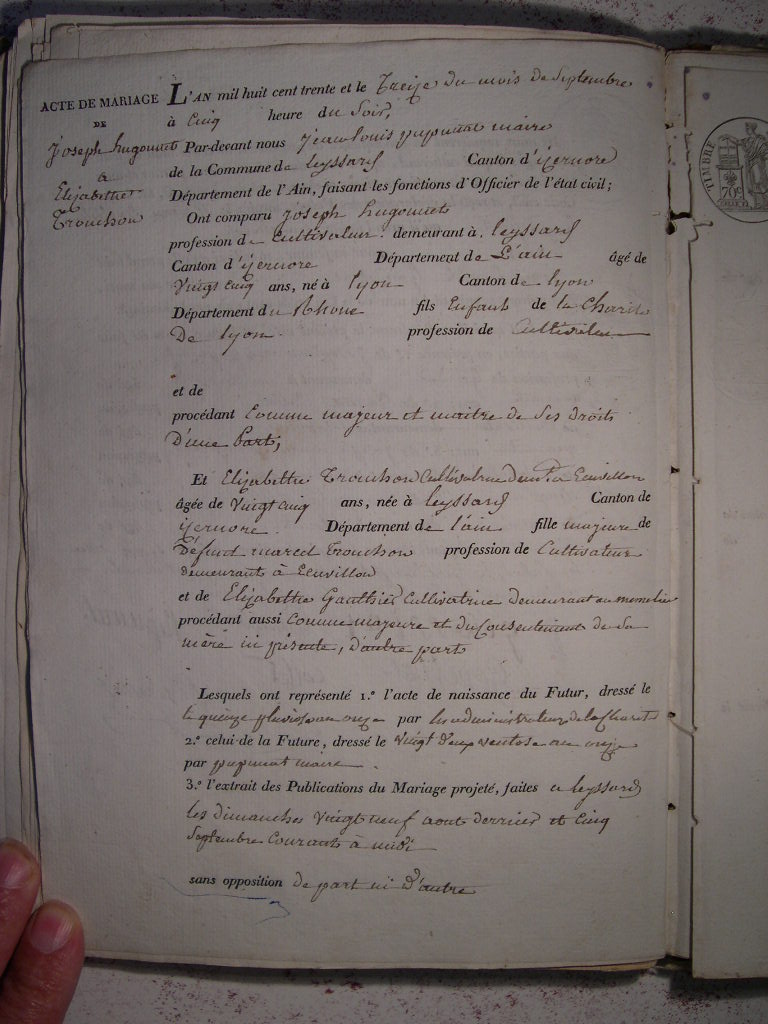 ACTE DE MARIAGE
DE
joseph hugonnet
a
Elizabethe
Trouchon
L'AN mil huit cent trente et le Treize du mois de Septembre
à Cinq heure du Soir,
Par-devant nous jean louis pupunat maire
de la Commune de leyssard Canton d'izernore
Département de l'Ain, faisant les fonctions d'Officier de l'état civil;
Ont comparu joseph hugonnet
profession de Cultivateur demeurant à leyssard
Canton d'izernore Département de L'ain âgé de
Vingt cinq ans, né à lyon Canton de lyon
Département du Rhone fils Enfant de la Charité
De lyon profession de Cultivateur
et de
procédant Comme majeur et maitre de Ses droits
D'une part;
Et Elizabethe Trouchon Cultivatrice demt. a
âgée de Vingt cinq ans, née à leyssard Canton de
izernore Département de l'ain fille majeure de
Défunt marcel Trouchon profession de Cultivateur
demeurant à
et de Elizabethe Gauthier Cultivatrice demeurant au meme lieu
procédant aussi Comme majeure et du Consentement de Sa
mère ici présente, d'autre part
Lesquels ont représenté 1.º l'acte de naissance du Futur, dressé le
le quinze pluviose an onze par les administrateurs de la Charité
2.º celui de la Future, dressé le vingt deux ventose an onze
par pupunat maire
3.º l'extrait des Publications du Mariage projeté, faites a leyssard
les dimanches vingt neuf aout dernier et Cinq
Septembre Courant à midi
sans opposition de part ni d'autre
TIMBRE
70c